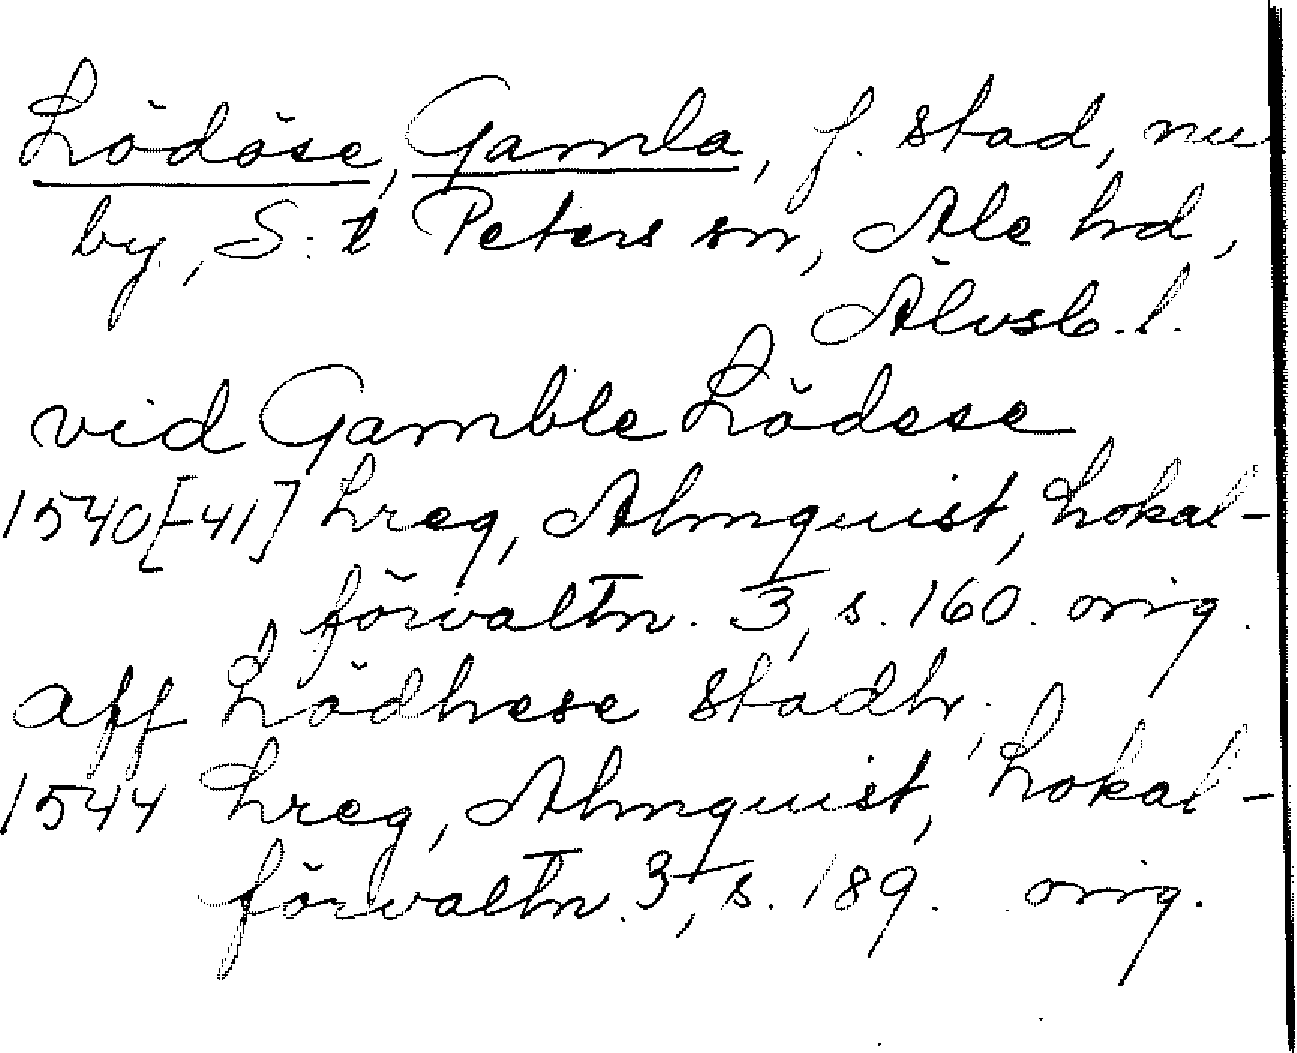 Lödöse, Gamla, f. stad, nu
by, S:t Peters sn, Ale hd,
Älvsb. l.
vid Gamble Lödese
1540[-41] Lreg, Almquist, Lokal-
förvaltn. 3, s. 160. orig.
aff Lödhese stadh,
1544 Lreg, Almquist, Lokal-
förvaltn. 3, s. 189. orig.